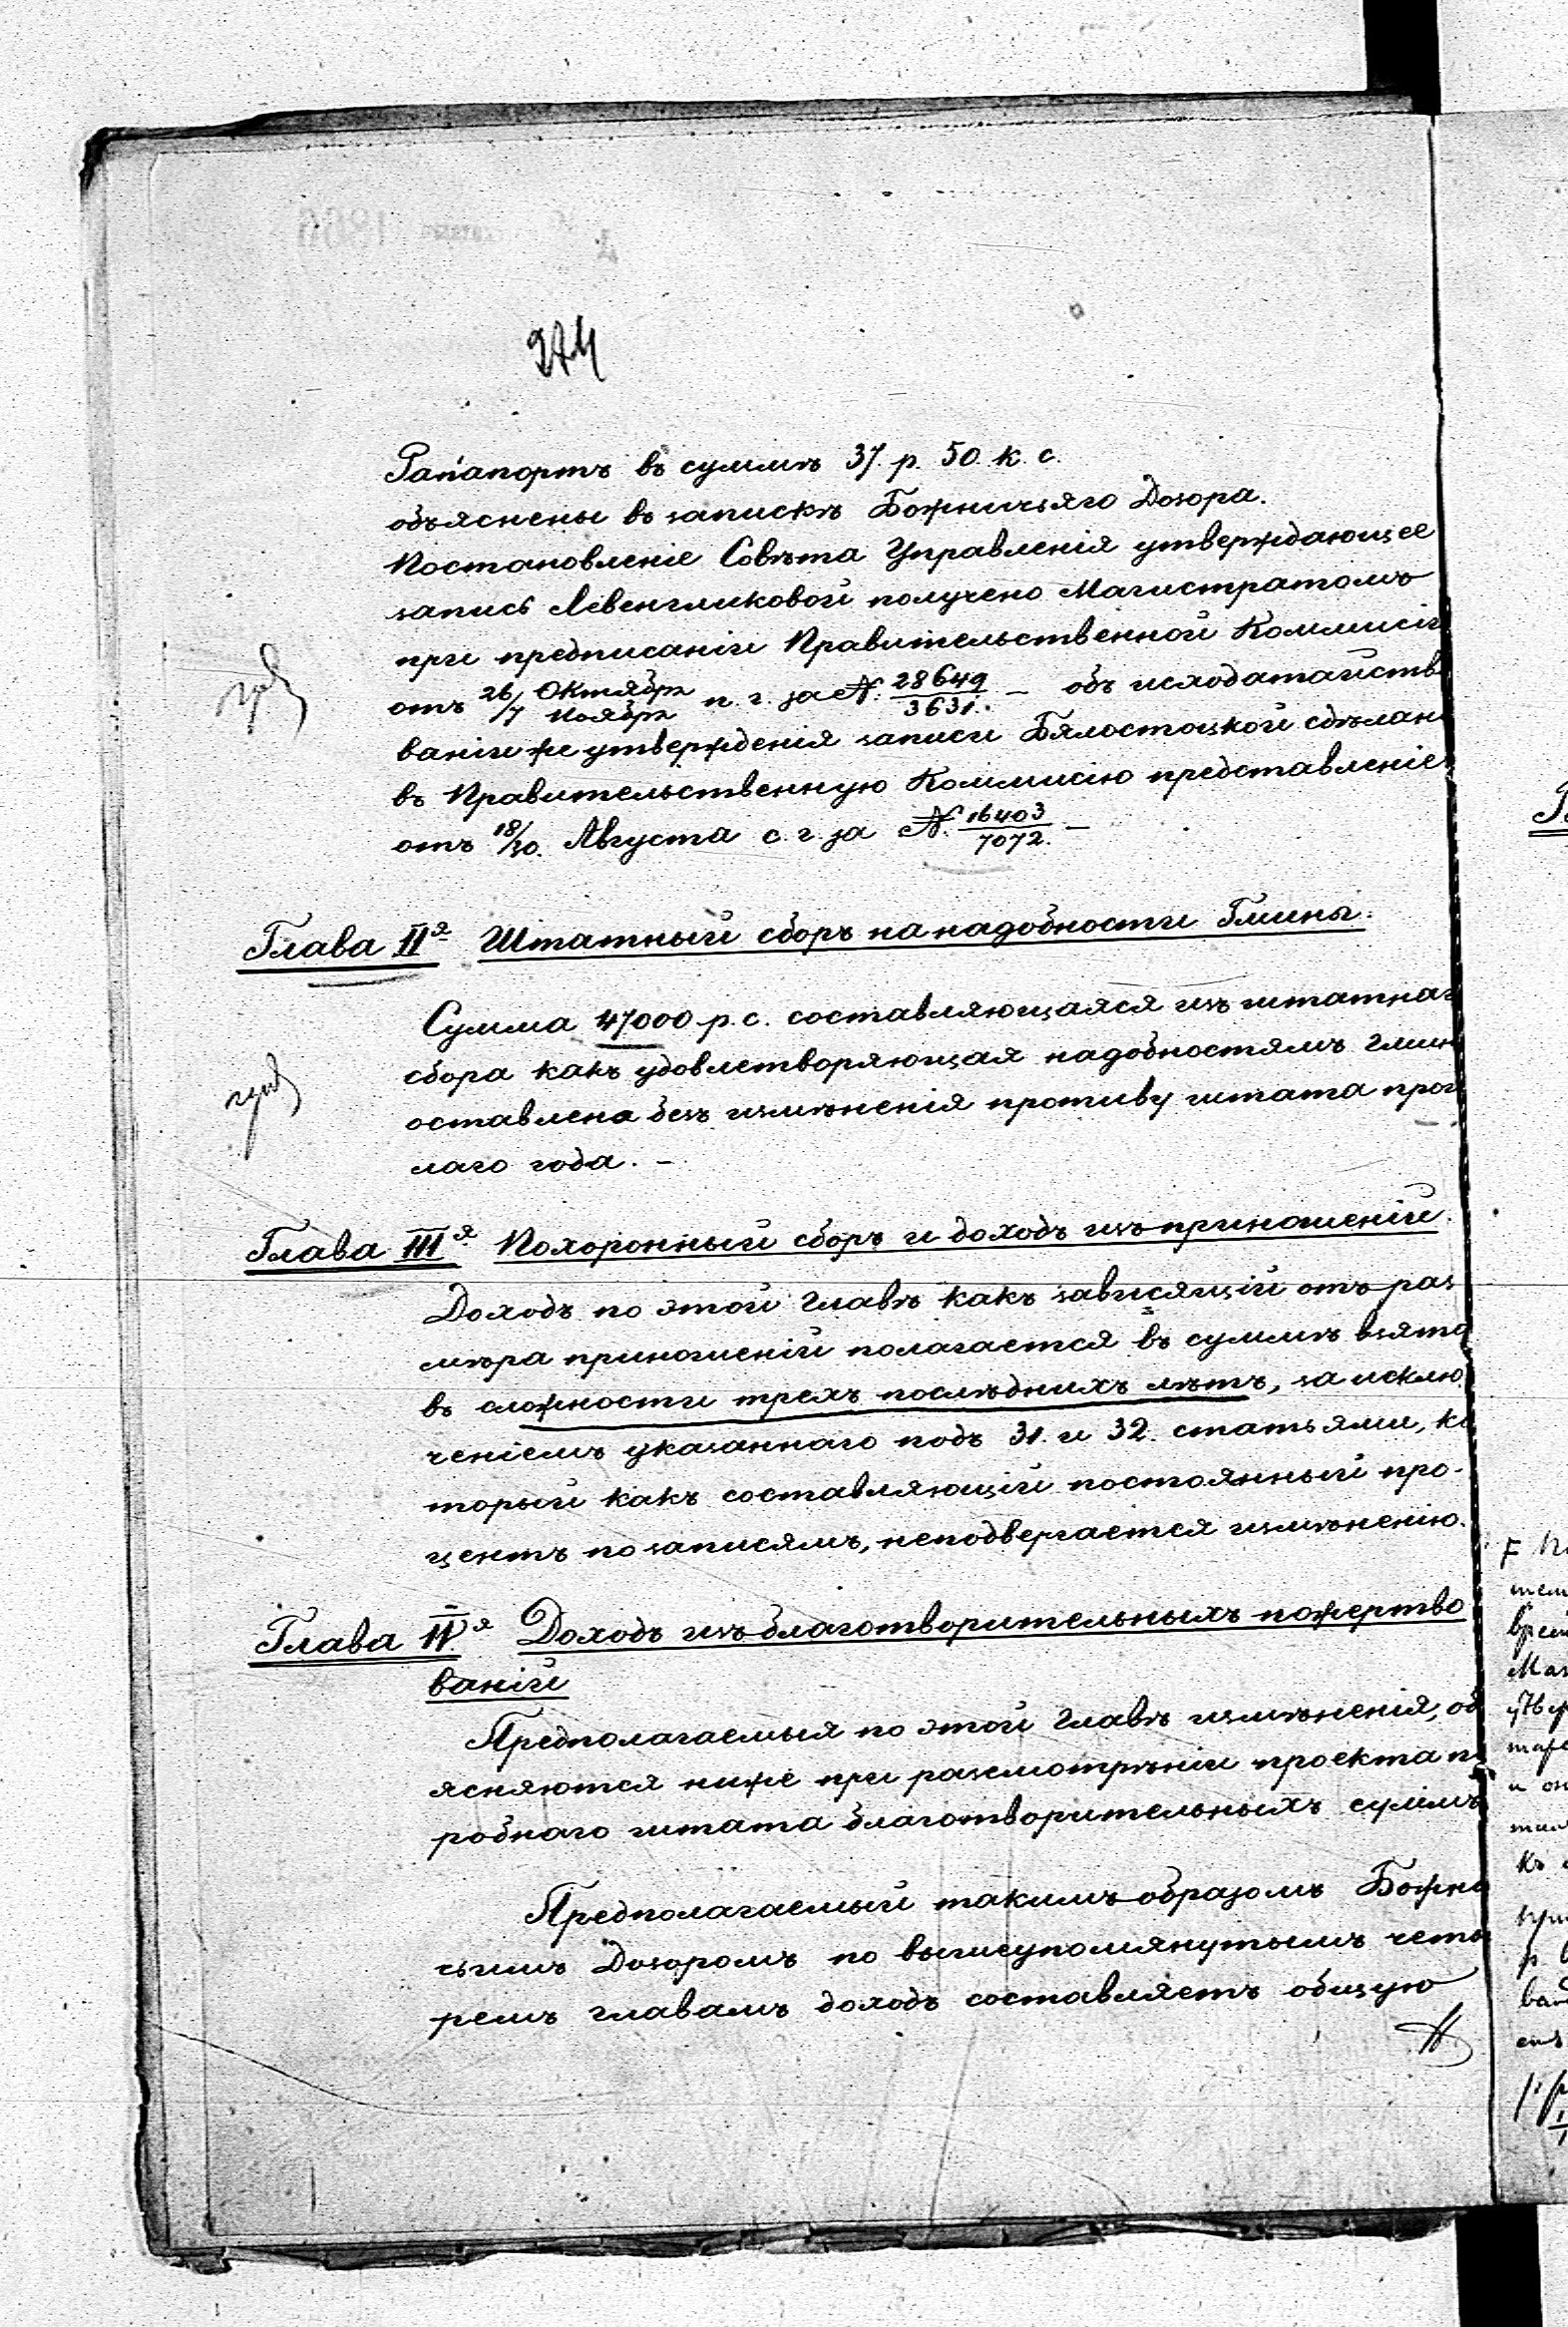 274
Рапапортъ въ суммѣ 37. р. 50. к. с.
объяснены въ запискѣ Божничьяго Дозора.
Постановленіе Совѣта Управленія утверждающее
запись Левенгликовой получено Магистратомъ
при предписаніи Правительственной Коммисіи
отъ 26/7 Октября/Ноября п. г. за №. 28649/3631. — объ исходатайство
ваніи же утвержденія записи Бялостоцкой сдѣлано
въ Правительственную Коммисію представленіе
отъ 18/30. Августа с. г. за №. 16403/7072. —
Глава IIя Штатный сборъ на надобности Гмины.
Сумма 47000 р. с. составляющаяся изъ штатнаг
сбора какъ удовлетворяющая надобностямъ гмин
оставлена безъ измѣненія противу штата прош
лаго года. —
Глава IIIя Похоронный сборъ и доходъ изъ приношеній.
Доходъ по этой главѣ какъ зависящій отъ раз
мѣра приношеній полагается въ суммѣ взято
въ сложности трехъ послѣднихъ лѣтъ, за исклю
ченіемъ указаннаго подъ 31. и 32. статьями, ко
торый какъ составляющій постоянный про-
центъ по записямъ, неподвергается измѣненію.
Глава IVя Доходъ изъ благотворительныхъ пожертво
ваній
Предполагаемыя по этой главѣ измѣненія, об
ясняются ниже при разсмотрѣніи проекта по
робнаго штата благотворительныхъ суммъ
Предполагаемый такимъ образомъ Божни
чьимъ Дозоромъ по вышеупомянутымъ четы
ремъ главамъ доходъ составляетъ общую